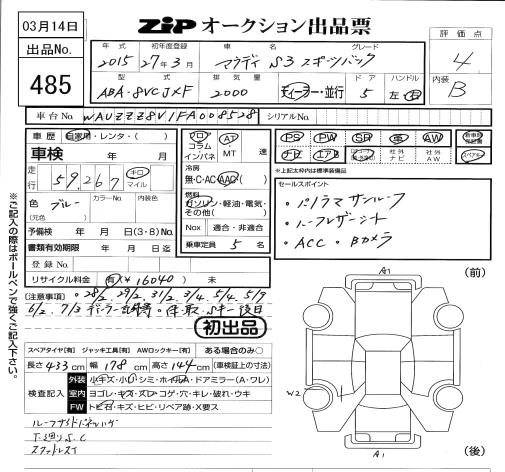 03月14日
出品No.
485
ZIP オークション出品票
評価点
4
内装
B
年式 初年度登録 車名 グレード
2015 27年3月 アウディ S3 スポーツバック
型式 排気量 ドア ハンドル
ABA-8VCJXF 2000 ディーラー・並行 5 左・右
車台No. WAUZZZ8V1FA008528 シリアルNo.
車歴 自家用・レンタ・( )
車検 年 月
走行 59,267 キロ マイル
色 ブルー カラーNo. 内装色
(元色)
予備検 年 月 日(3・8)No.
書類有効期限 年 月 日迄
登録No.
リサイクル料金 有(¥16040) 未
フロア コラム インパネ
AT・MT 速
冷房
無・C・AC・AAC
燃料
ガソリン・軽油・電気・その他( )
Nox 適合・非適合
乗車定員 5 名
PS PW SR 革 AW
ナビ エアB 社外ナビ 社外AW
スペアキー
*上記太枠内は標準装備品
セールスポイント
・パノラマサンルーフ
・ハーフレザーシート
・ACC ・Bカメラ
注意事項・28/2. 29/2. 31/2. 3/4. 5/4. 5/9
6/2. 7/3
初出品
スペアタイヤ[有] ジャッキ工具[有] AWロックキー[有] ある場合のみ○
長さ433cm 幅178cm 高さ144cm (車検証上の寸法)
検査記入
外装 小キズ・小凹・シミ・ホイールA・ドアミラー(A・ワレ)
室内 ヨゴレ・キズ・スレ・コゲ・穴・キレ・破れ・ウキ
FW トビ石・キズ・ヒビ・リペア跡・X要ス
スマットレスイ
A1
(前)
W2
A1
(後)
※ご記入の際はボールペンで強くご記入下さい。